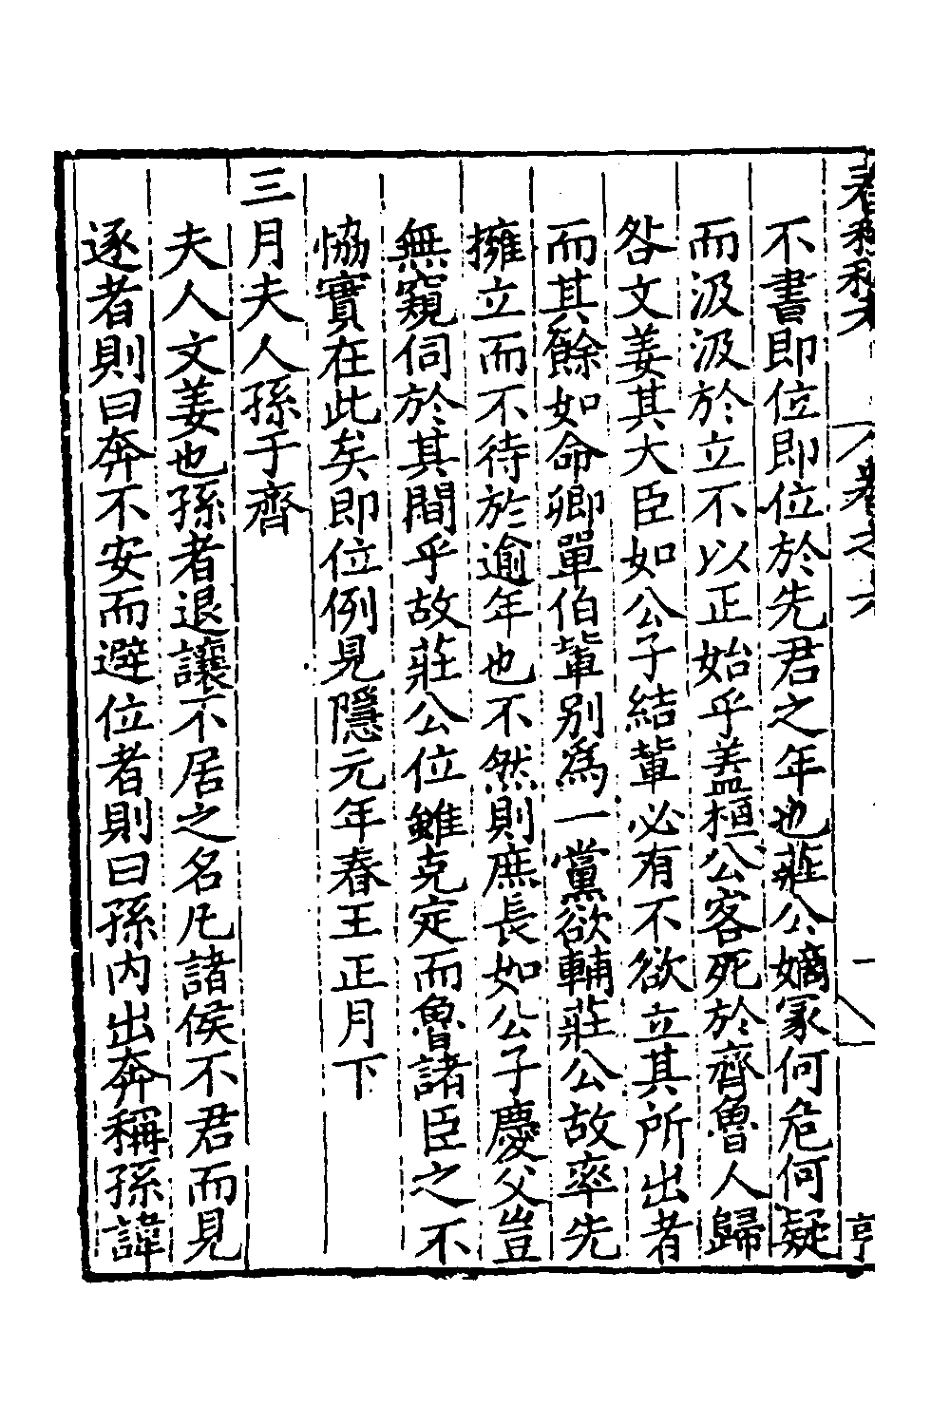 不書即位即位於先君之年也莊公嫡冢何危何疑
而汲汲於立不以正始乎盖桓公客死於齊魯人歸
咎文姜其大臣如公子結輩必有不欲立其所出者
而其餘如命卿單伯輩别爲一黨欲輔莊公故率先
擁立而不待於逾年也不然則庶長如公子慶父豈
無窺伺於其間乎故莊公位雖克定而魯諸臣之不
恊實在此矣即位例見隱元年春王正月下
三月夫人孫于齊
夫人文姜也孫者退讓不居之名凢諸侯不君而見
逐者則曰奔不安而避位者則曰孫内出奔稱孫諱